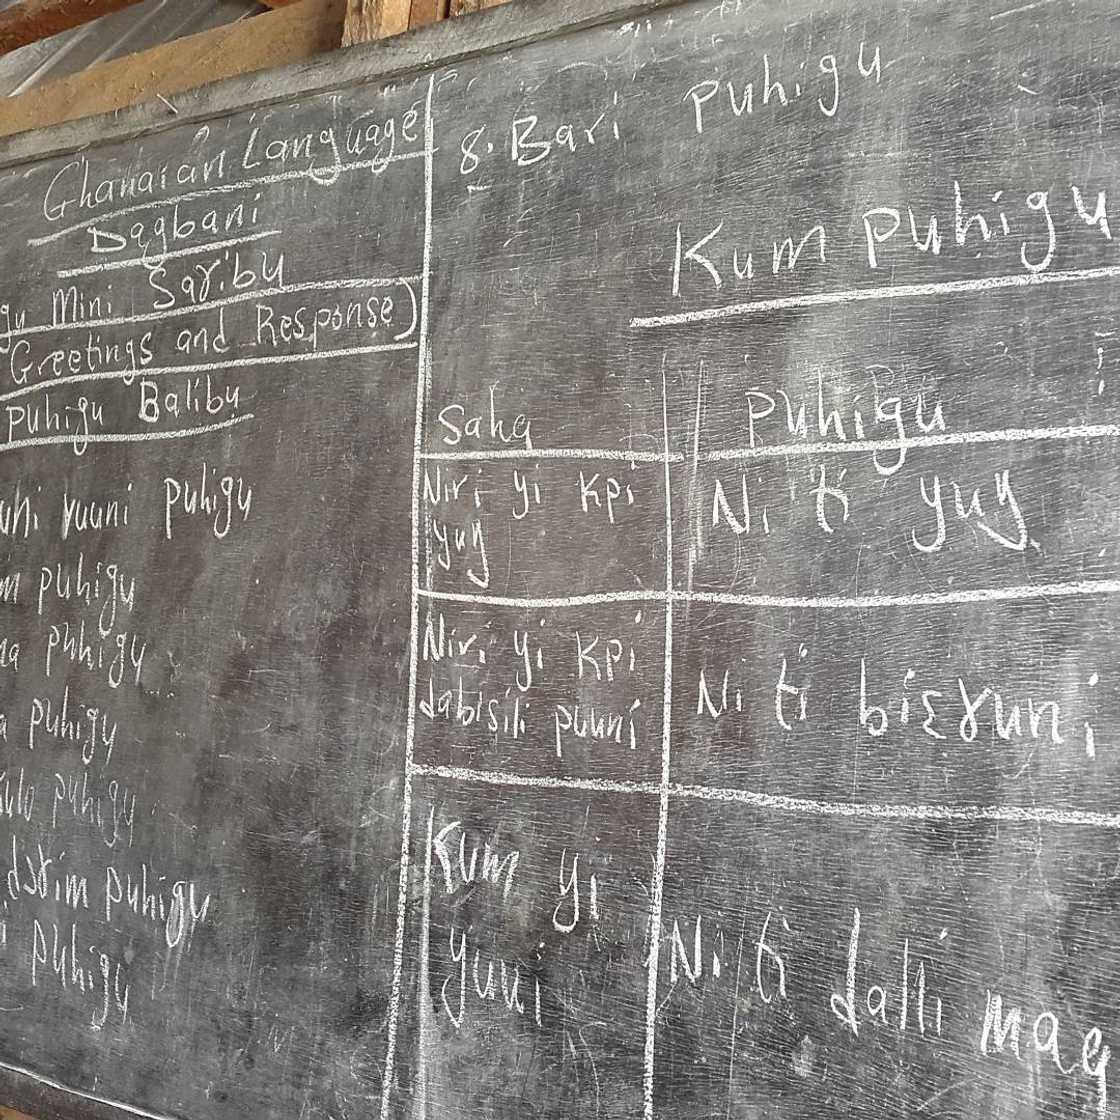 Ghanaian Language
Dagbani
Mini Saɣibu
Greetings and Response)
Puhigu Balibu
puhigu
puhigu
puhigu
puhigu
puhigu
puhigu
puhigu
8. Bari puhigu
Kum puhigu
Saha
Puhigu
Niri yi kpi
yuŋ
Ni ti yuŋ
Niri yi kpi
dabisili puuni
Ni ti biɛɣuni
Kum yi
yuui
Ni ti dalli